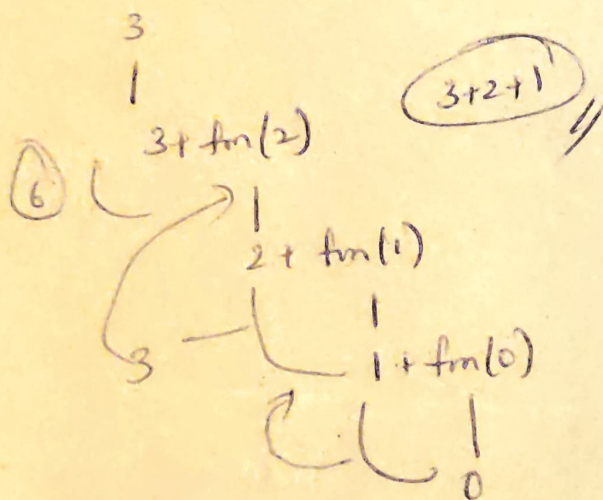 3
3+2+1
3+ fm(2)
6
2 + fm(1)
3
1 + fm(0)
0